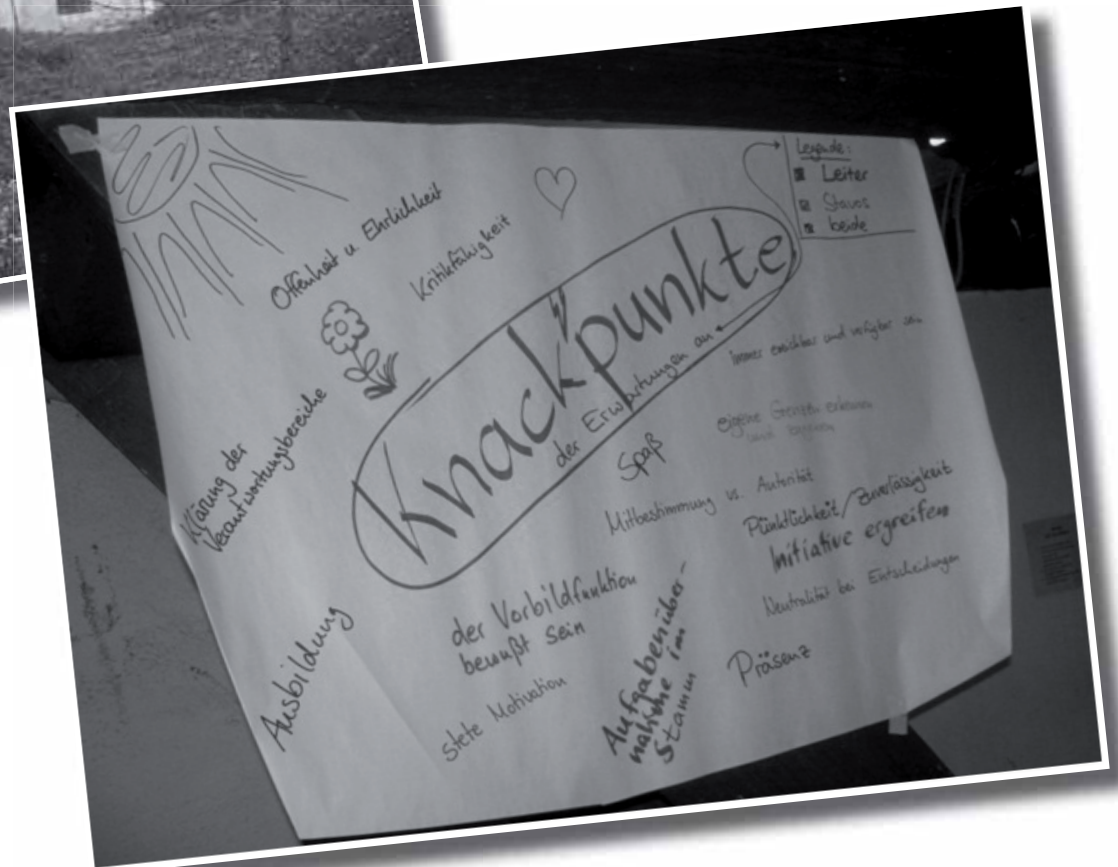 Legende:
Leiter
Stavos
beide
Offenheit u. Ehrlichkeit
Kritikfähigkeit
Knackpunkte
der Erwartungen an
immer erreichbar und verfügbar sein
Klärung der
Verantwortungsbereiche
eigene Grenzen erkennen
und
Spaß
Mitbestimmung vs. Autorität
Pünktlichkeit/Zuverlässigkeit
Initiative ergreifen
Neutralität bei Entscheidungen
der Vorbildfunktion
bewußt sein
Ausbildung
stete Motivation
Aufgabenüber-
nahme im
Stamm
Präsenz